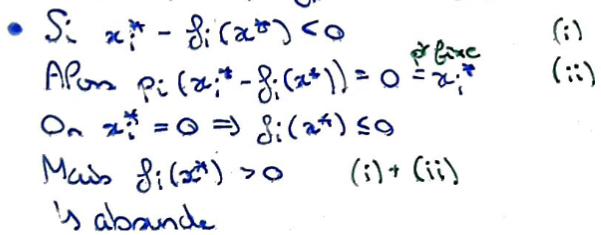 • Si xᵢ* - fᵢ(x*) < 0 (i)
Alors pᵢ(xᵢ* - fᵢ(x*)) = 0 = xᵢ* pt fixe (ii)
Or xᵢ* = 0 ⇒ fᵢ(x*) ≤ 0
Mais fᵢ(x*) > 0 (i) + (ii)
↳ absurde